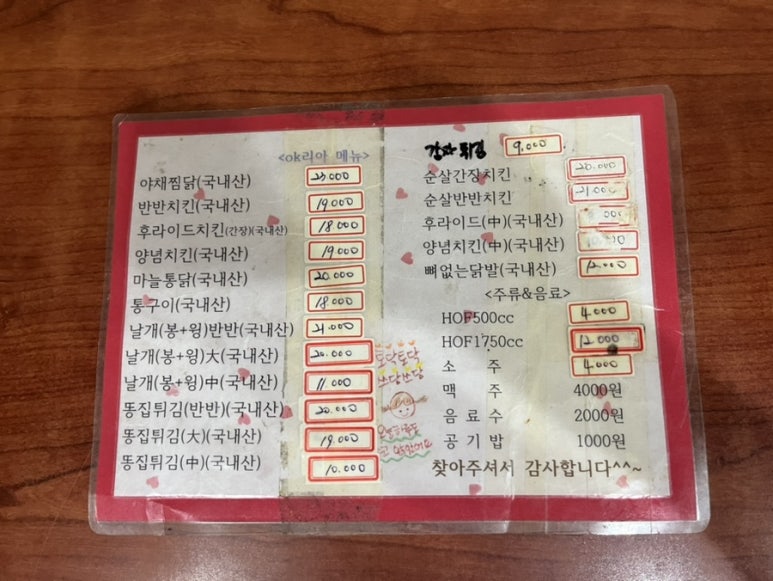 <ok리아 메뉴>
야채찜닭(국내산) 23.000
반반치킨(국내산) 19.000
후라이드치킨(간장)(국내산) 18.000
양념치킨(국내산) 19.000
마늘통닭(국내산) 20.000
통구이(국내산) 18.000
날개(봉+윙)반반(국내산) 21.000
날개(봉+윙)大(국내산) 20.000
날개(봉+윙)中(국내산) 11.000
똥집튀김(반반)(국내산) 20.000
똥집튀김(大)(국내산) 19.000
똥집튀김(中)(국내산) 10.000
토닥토닥
쓰담쓰담
튀김 9.000
순살간장치킨 20.000
순살반반치킨 21.000
후라이드(中)(국내산)
양념치킨(中)(국내산)
뼈없는닭발(국내산) 12.000
<주류&음료>
HOF500cc 4.000
HOF1750cc 12.000
소 주 4.000
맥 주 4000원
음료수 2000원
공기밥 1000원
찾아주셔서 감사합니다^^~